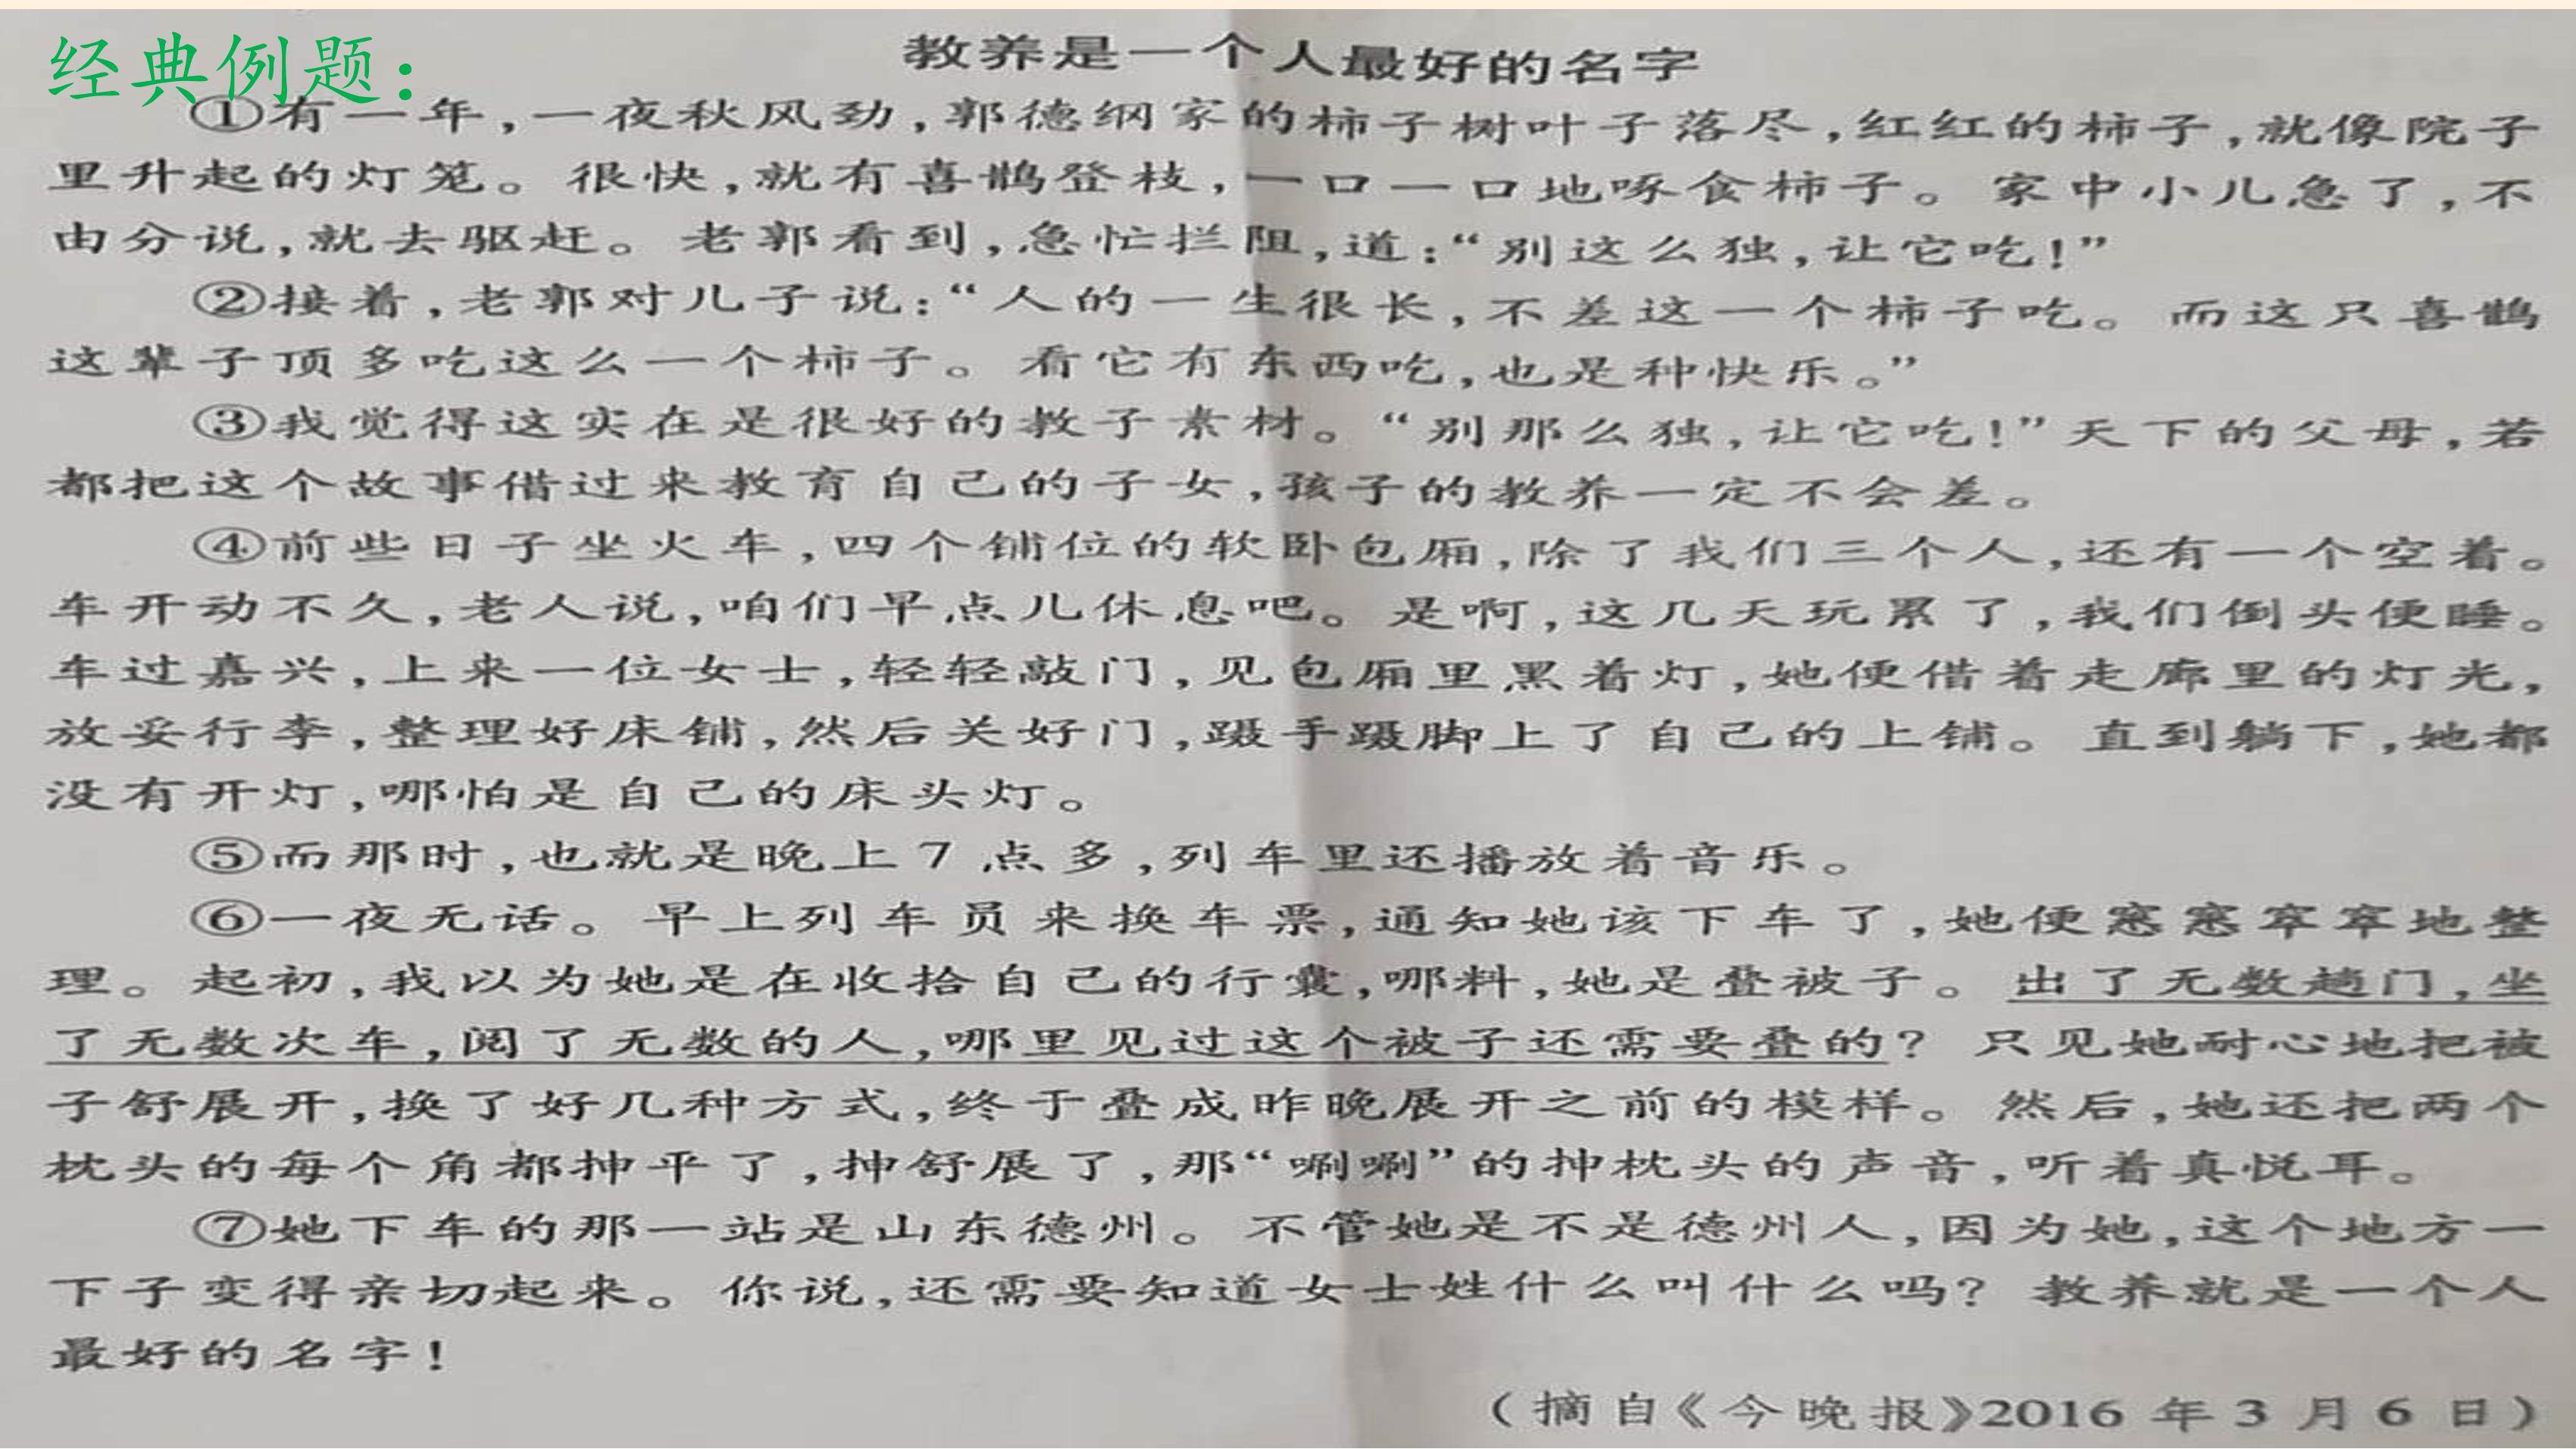 经典例题：
教养是一个人最好的名字
①有一年,一夜秋风劲,郭德纲家的柿子树叶子落尽,红红的柿子,就像院子
里升起的灯笼。很快,就有喜鹊登枝,一口一口地啄食柿子。家中小儿急了,不
由分说,就去驱赶。老郭看到,急忙拦阻,道:“别这么独,让它吃!”
②接着,老郭对儿子说:“人的一生很长,不差这一个柿子吃。而这只喜鹊
这辈子顶多吃这么一个柿子。看它有东西吃,也是种快乐。”
③我觉得这实在是很好的教子素材。“别那么独,让它吃!”天下的父母,若
都把这个故事借过来教育自己的子女,孩子的教养一定不会差。
④前些日子坐火车,四个铺位的软卧包厢,除了我们三个人,还有一个空着。
车开动不久,老人说,咱们早点儿休息吧。是啊,这几天玩累了,我们倒头便睡。
车过嘉兴,上来一位女士,轻轻敲门,见包厢里黑着灯,她便借着走廊里的灯光,
放妥行李,整理好床铺,然后关好门,蹑手蹑脚上了自己的上铺。直到躺下,她都
没有开灯,哪怕是自己的床头灯。
⑤而那时,也就是晚上7点多,列车里还播放着音乐。
⑥一夜无话。早上列车员来换车票,通知她该下车了,她便窸窸窣窣地整
理。起初,我以为她是在收拾自己的行囊,哪料,她是叠被子。出了无数趟门,坐
了无数次车,阅了无数的人,哪里见过这个被子还需要叠的?只见她耐心地把被
子舒展开,换了好几种方式,终于叠成昨晚展开之前的模样。然后,她还把两个
枕头的每个角都抻平了,抻舒展了,那“唰唰”的抻枕头的声音,听着真悦耳。
⑦她下车的那一站是山东德州。不管她是不是德州人,因为她,这个地方一
下子变得亲切起来。你说,还需要知道女士姓什么叫什么吗?教养就是一个人
最好的名字!
(摘自《今晚报》2016年3月6日)